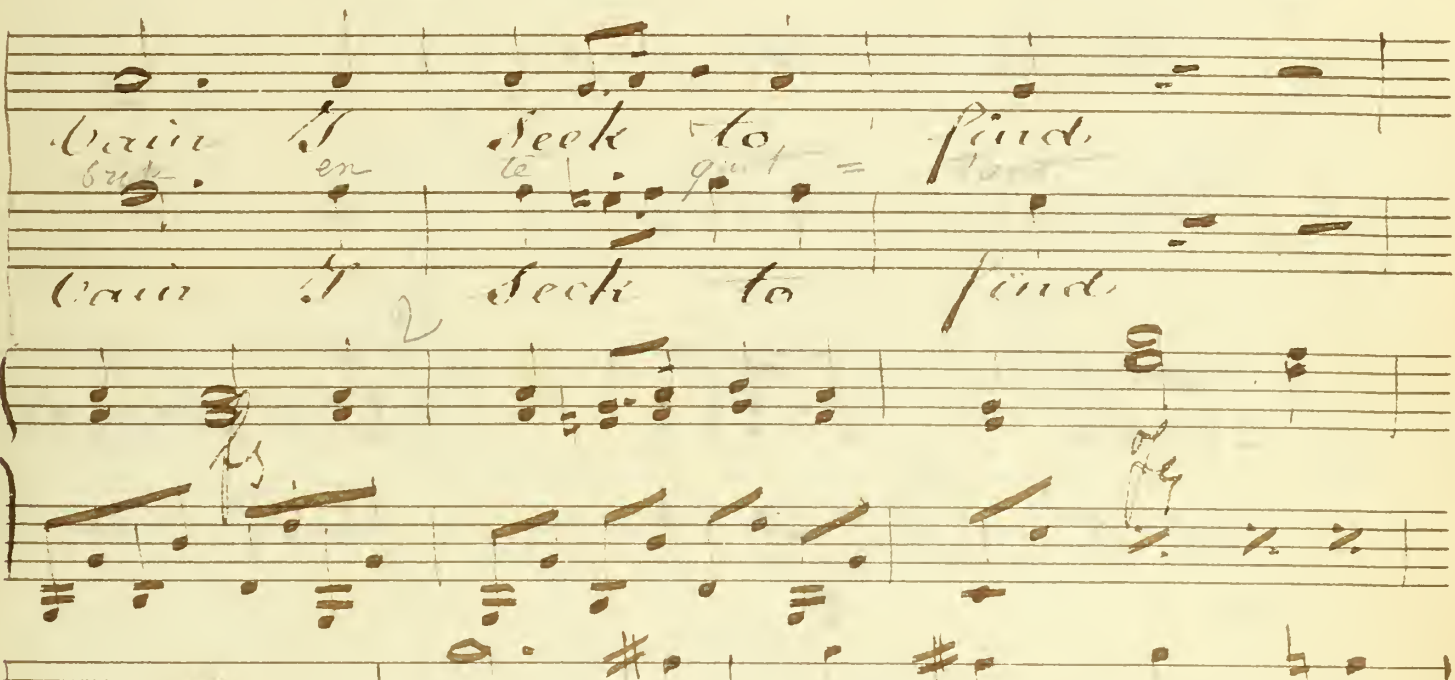 vain I seek to find
en te
vain I seek to find
2